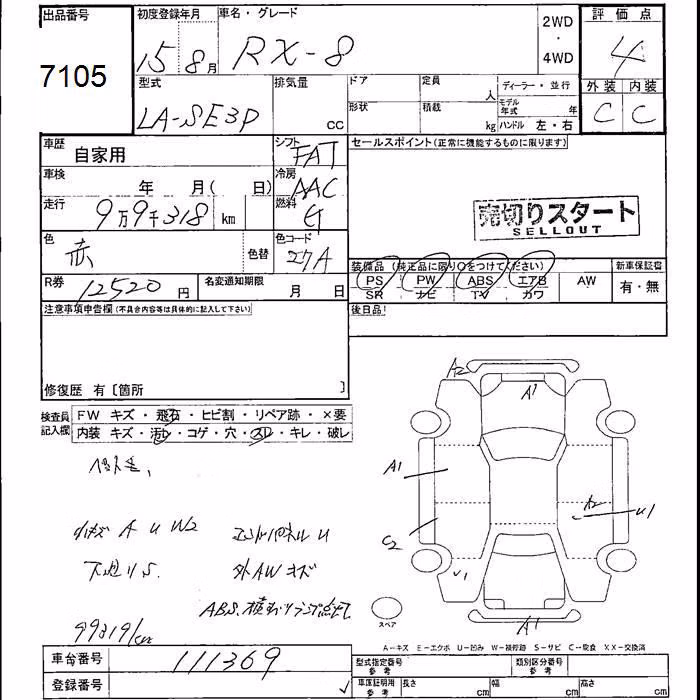 出品番号 初度登録年月 車名・グレード 2WD 評価点
7105 15 8月 RX-8 ・ 4WD 4
型式 排気量 ドア 定員 人 ディーラー・並行 外装 内装
LA-SE3P CC 形状 積載 kg モデル年式 年 C C
ハンドル 左・右
車歴 自家用 シフト FAT セールスポイント(正常に機能するものに限ります)
車検 年 月( 日) 冷房 AAC
走行 9万9千318 km 燃料 G
売切りスタート
SELLOUT
色 赤 色替 色コード 27A
装備品 (純正品に限り○をつけてください) 新車保証書
PS PW ABS エアB AW 有・無
SR ナビ TV カワ
R券 12520 円 名変通知期限 月 日
注意事項申告欄(不具合内容等は具体的に記入して下さい) 後日品!
修復歴 有 [箇所 ]
検査員 FW キズ・飛石・ヒビ割・リペア跡・×要
記入欄 内装 キズ・汚レ・コゲ・穴・スレ・キレ・破レ
A2 A1
A1 A2 U1
小キズ A U W2 エンドパネル U C2
下廻りS 外AWキズ
99319/km A1 スペア
A-キズ E-エクボ U-凹み W-補修跡 S-サビ C-腐食 XX-交換済
車台番号 111369 型式指定番号 参考 類別区分番号 参考
登録番号 車庫証明用 参考 長さ cm 幅 cm 高さ cm